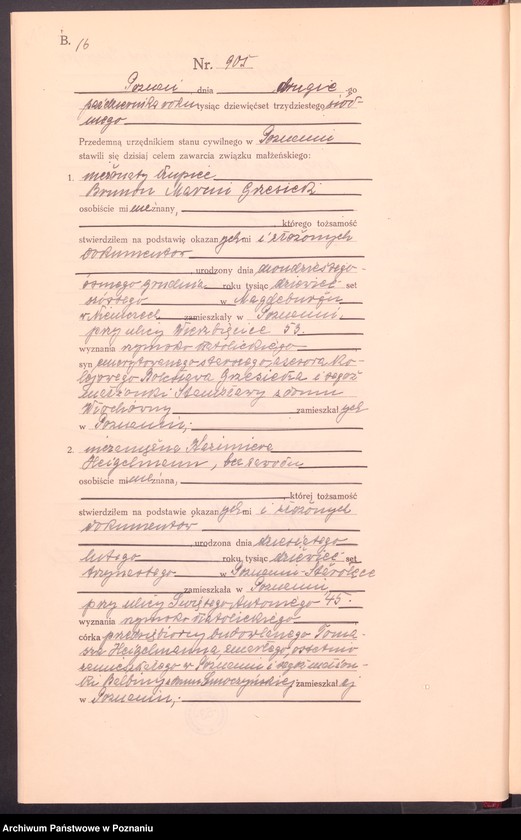 B. 16
Nr. 905
Poznań, dnia drugiego
października roku tysiąc dziewięćset trzydziestego siód-
mego
Przedemną urzędnikiem stanu cywilnego w Poznaniu
stawili się dzisiaj celem zawarcia związku małżeńskiego:
1. nieżonaty kupiec
Brunon Marcin Grzesicki
osobiście mi nieznany,
którego tożsamość
stwierdziłem na podstawie okazanych mi i złożonych
dokumentów
, urodzony dnia dwudziestego
ósmego grudnia roku tysiąc dziewięć set
szóstego w Magdeburgu
w Niemczech zamieszkały w Poznaniu
przy ulicy Wierzbięcice 53.
wyznania rzymsko katolickiego
syn emerytowanego starszego asesora ko-
lejowego Bolesława Grzesickiego i tegoż
małżonki Stanisławy z domu
zamieszkałych
w Poznaniu;
2. niezamężna Kazimiera
Heigelmann, bez zawodu
osobiście mi nieznana,
, której tożsamość
stwierdziłem na podstawie okazanych mi i złożonych
dokumentów
, urodzona dnia dziesiątego
lutego roku tysiąc dziewięć set
trzynastego w Poznaniu-Starołęce
zamieszkała w Poznaniu
przy ulicy Świętego Antoniego 45
wyznania rzymsko katolickiego
córka przedsiębiorcy budowlanego Toma-
sza Heigelmanna, zmarłego ostatnio
zamieszkałego w Poznaniu i tegoż małżon-
ki Balbiny z domu zamieszkałej
w Poznaniu;
Archiwum Państwowe w Poznaniu